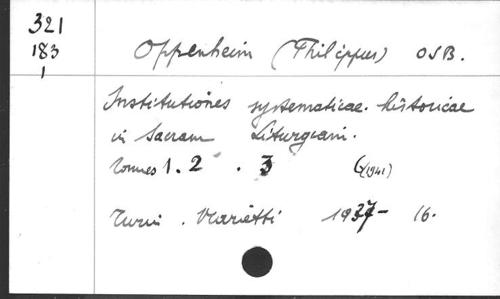 321
183
1
Oppenheim (Philippus) OSB.
Institutiones systematicae-historicae
in Sacram Liturgiam.
Tomes 1. 2 . 3 6 (1941)
Turin . Marietti 1937- 16.